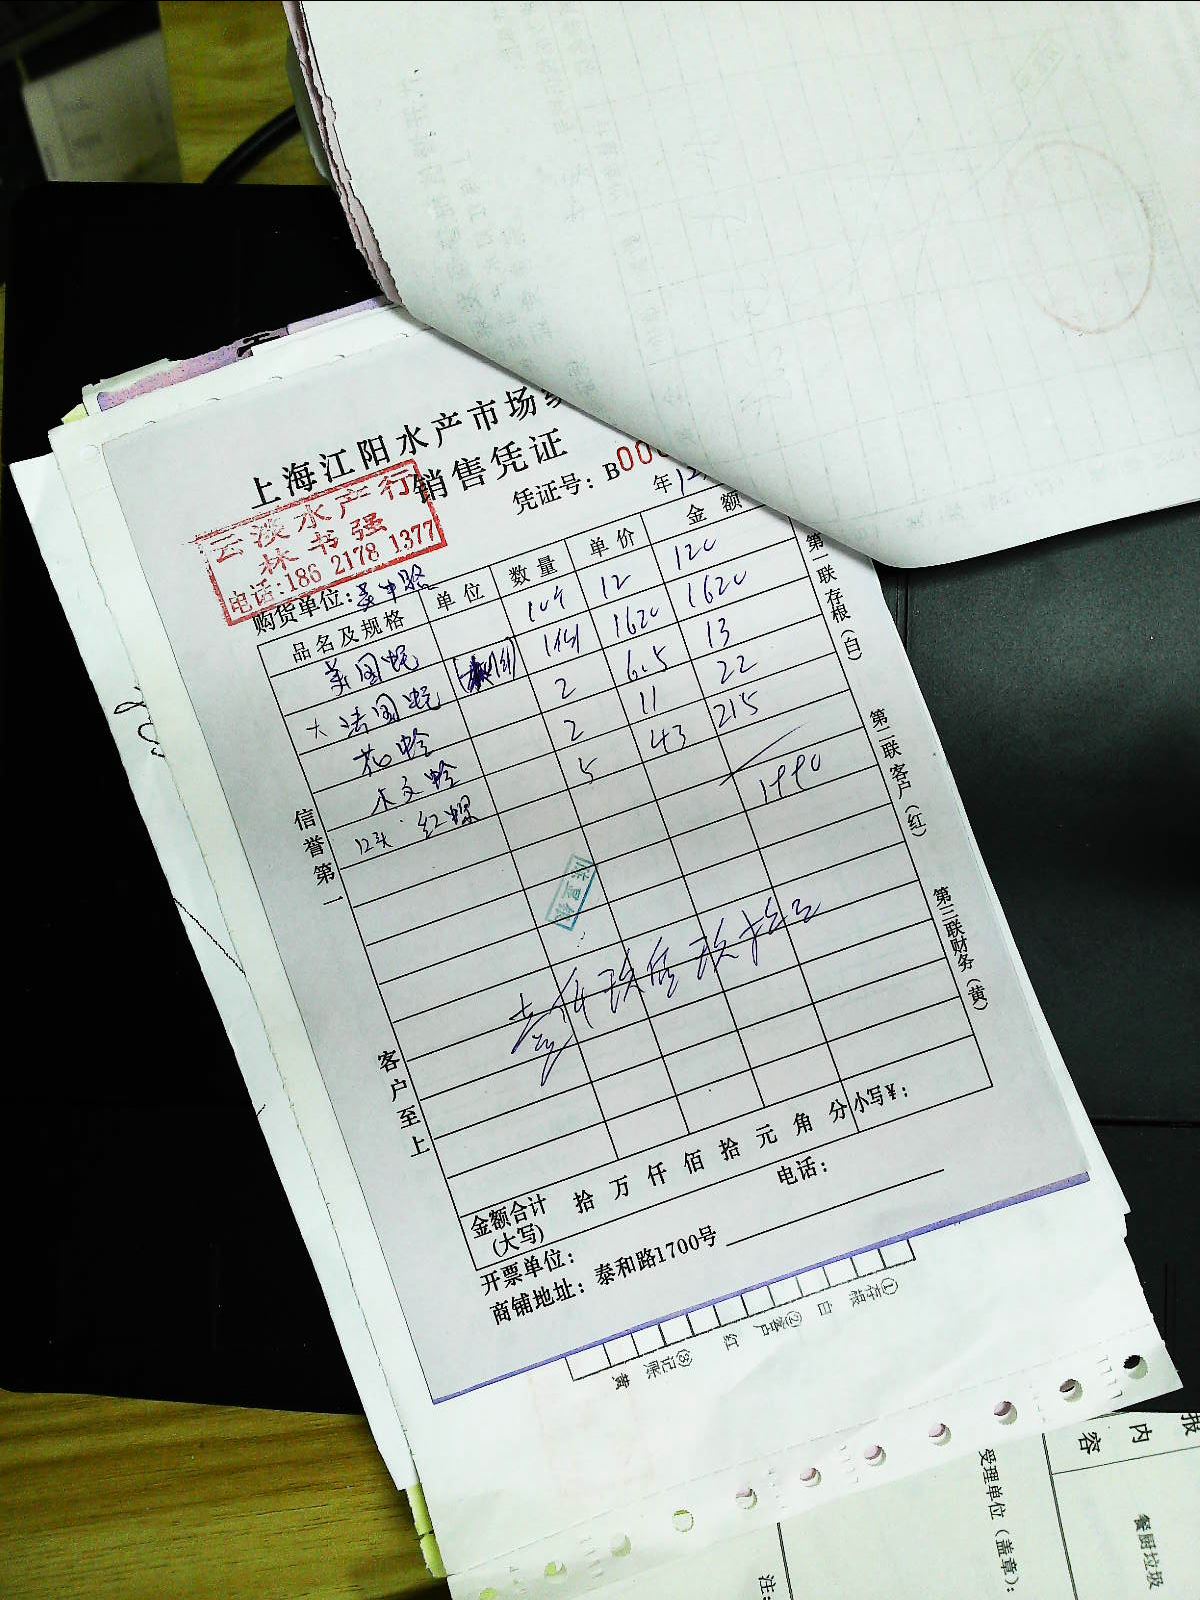 上海江阳水产市场
销售凭证
云淡水产行
林书强
电话:186 2178 1377
凭证号：B00
年12
购货单位：
品名及规格 单位 数量 单价 金额
美国蚝 10个 12 120
大法国蚝 1件 1620 1620
花蛤 2 6.5 13
大文蛤 2 11 22
12头 红螺 5 43 215
1990
壹仟玖佰玖拾元
信誉第一
客户至上
第一联存根（白）
第二联客户（红）
第三联财务（黄）
金额合计（大写） 拾 万 仟 佰 拾 元 角 分 小写¥：
开票单位： 电话：
商铺地址：泰和路1700号
①存根 白 ②客户 红 ③记账 黄
报
内容
受理单位（盖章）：
餐厨垃圾
注：